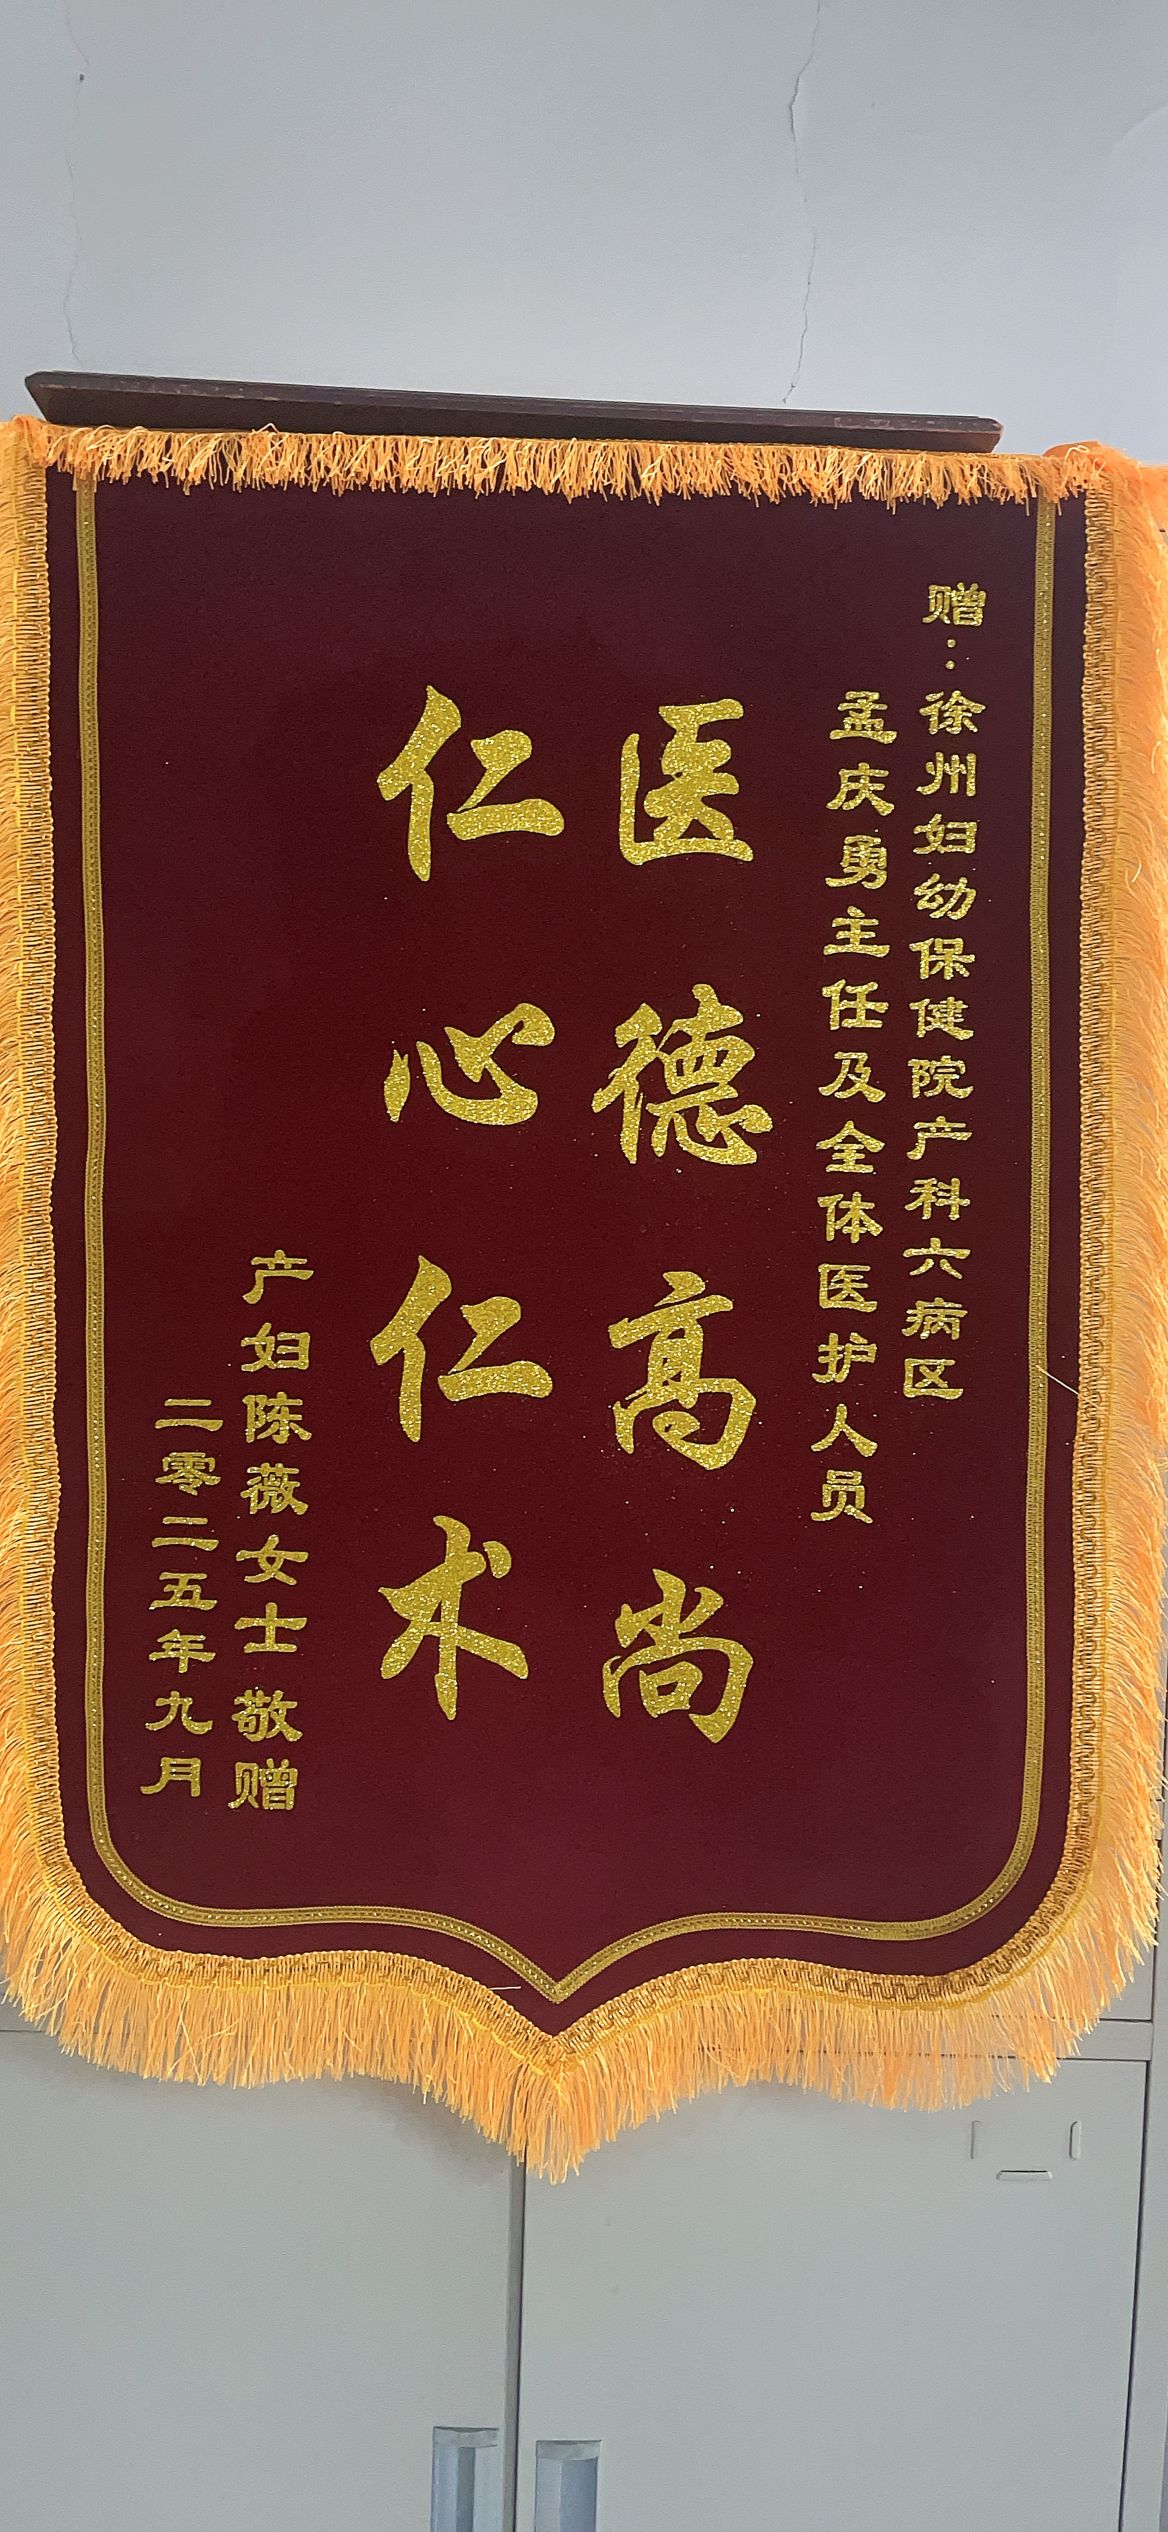 赠:徐州妇幼保健院产科六病区
孟庆勇主任及全体医护人员
医德高尚
仁心仁术
产妇陈薇女士 敬赠
二零二五年九月